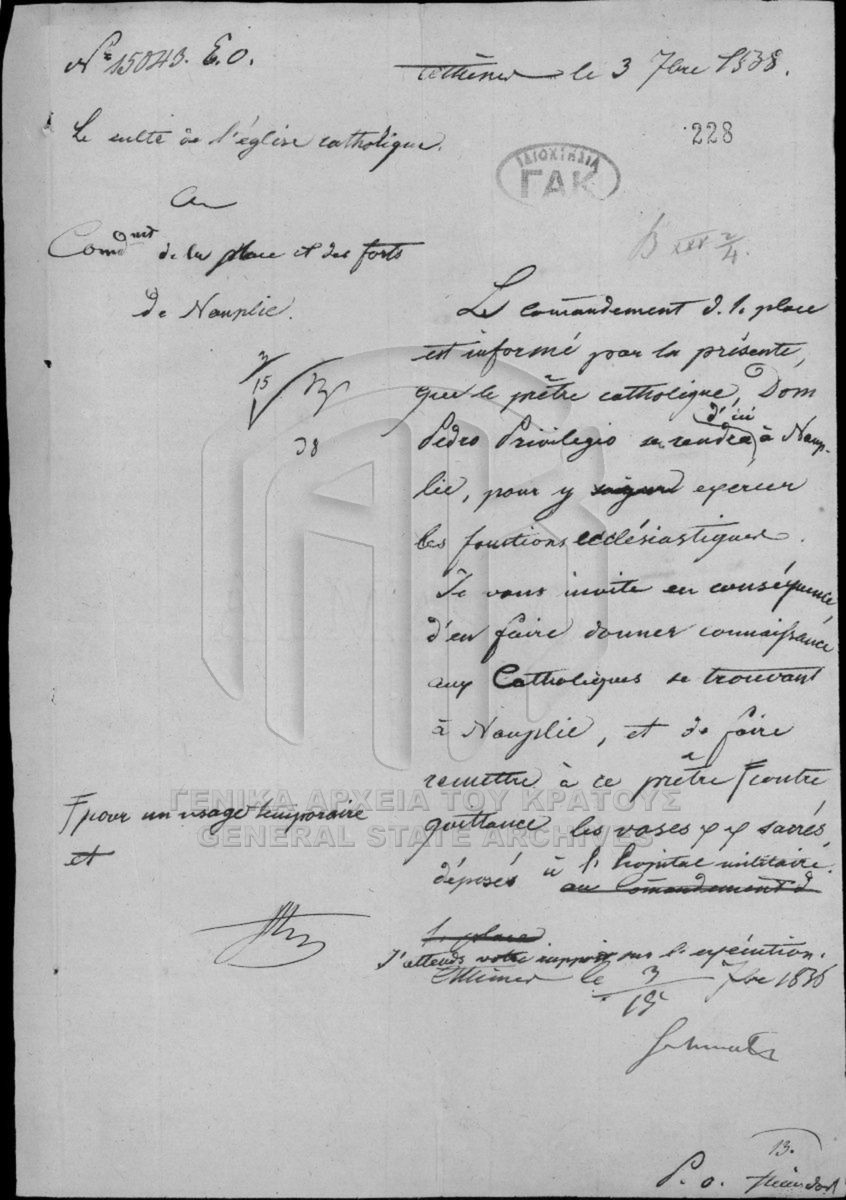 Nº 15043. E.O.
Athènes le 3 7bre 1838.
Le culte de l'église catholique.
228
ΙΔΙΟΚΤΗΣΙΑ
ΓΑΚ
Au
Comdmt de la place et des forts
de Nauplie.
3/15
38
Le comandement d. l. place
est informé par la présente,
que le prêtre catholique, Dom
Pedro Privilegio se rendra d'ici à Naup-
lie, pour y exercer
les fonctions ecclésiastiques.
Je vous invite en conséquence
d'en faire donner connaissance
aux Catholiques se trouvant
à Nauplie, et de faire
remettre à ce prêtre F contre
quittance les vases sacrés
déposés à l. hopital militaire.
au comandement d
l. place
F pour un usage temporaire
et
J'attends votre rapport sur l. exécution.
Athènes le 3/15 7bre 1838
P. o.
13.
ΓΕΝΙΚΑ ΑΡΧΕΙΑ ΤΟΥ ΚΡΑΤΟΥΣ
GENERAL STATE ARCHIVES